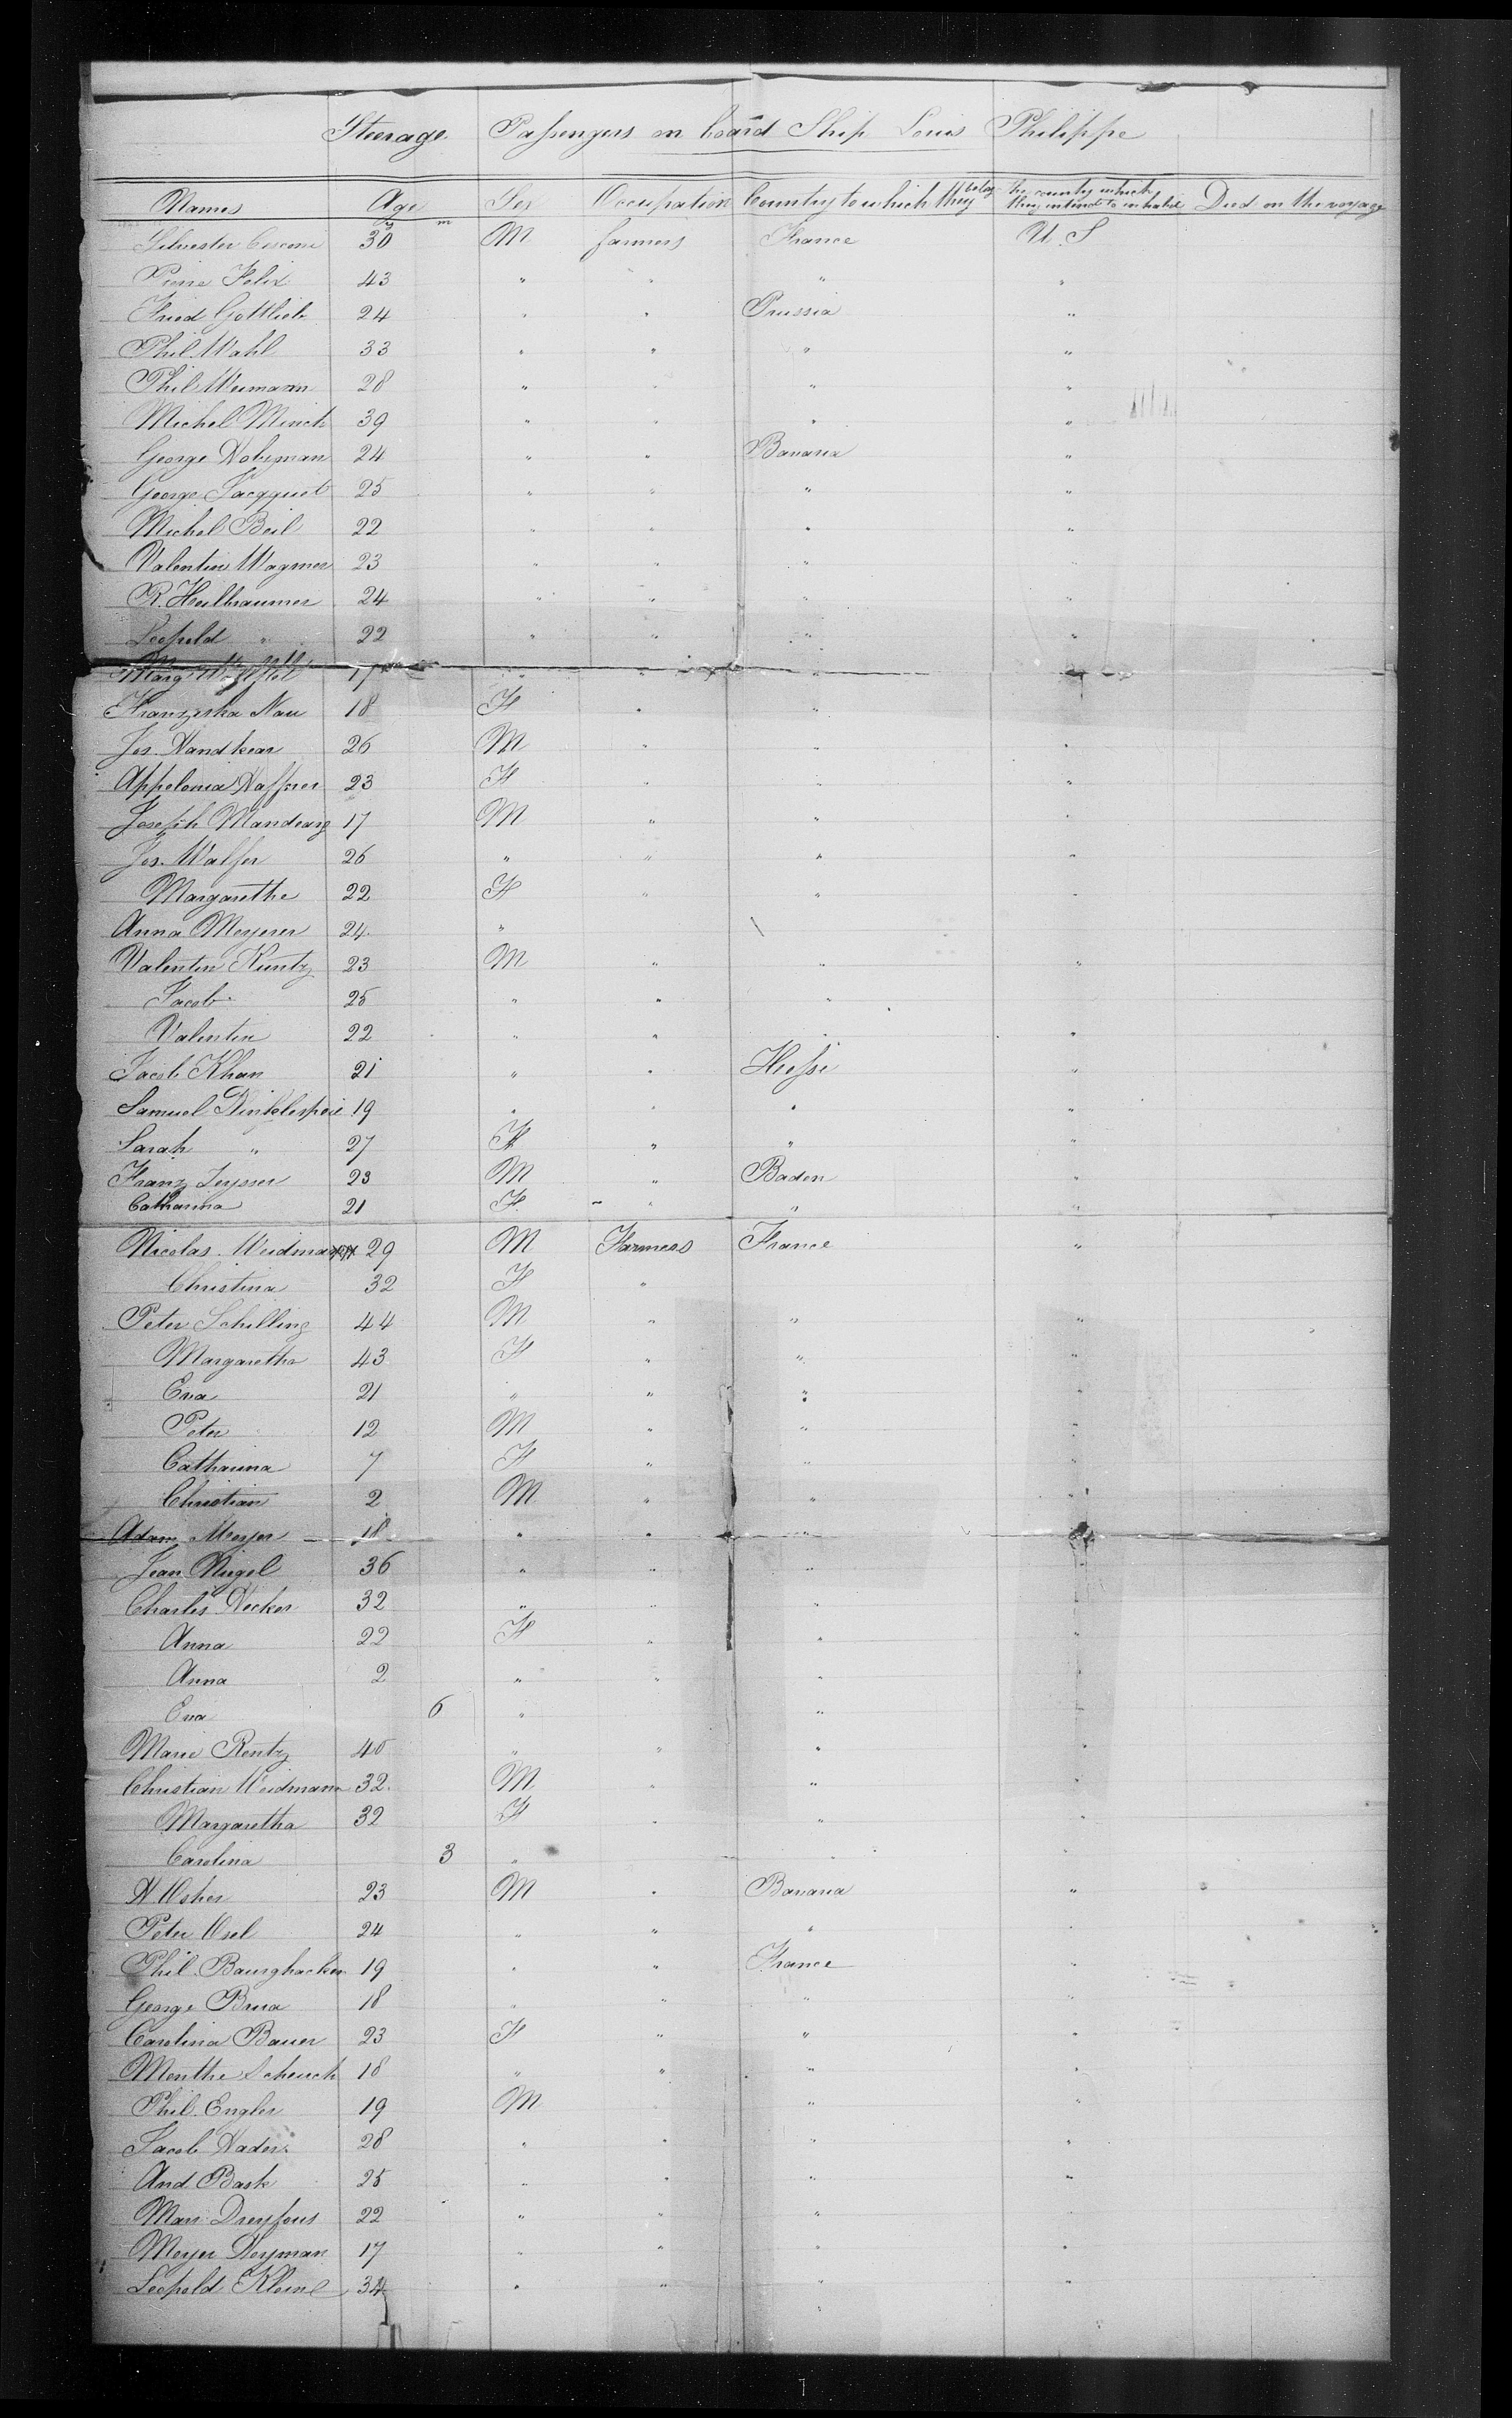 Steerage Passengers on board Ship Louis Philippe
Names Age Sex Occupation Country to which they belong the country which they intend to inhabit Died on the voyage
y m
Silvester 30 M farmers France U.S
Pierre Felix 43 " " " "
Fried Gottlieb 24 " " Prussia "
Phil. Wahl 33 " " " "
Phil Weimann 28 " " " "
Michel Minch 39 " " " "
George Hobeman 24 " " Bavaria "
George Jacqquot 25 " " " "
Michel Beil 22 " " " "
Valentin Wagmer 23 " " " "
R. Heilbraumer 24 " " " "
Leopold " 22 " " " "
17 " " " "
Franziska Nau 18 F " "
Jos. Handkear 26 M " " "
Appelonia Haffner 23 F " " "
Joseph Mandearz 17 M " " "
Jos. Walfer 26 " " " "
Margarethe 22 F " " "
Anna Meyerer 24 "
Valentin Kuntz 23 M " " "
Jacob 25 " " "
Valentin 22 " " " "
Jacob Khan 21 " " Hesse "
Samuel 19 " " " "
Sarah " 27 F " " "
Franz Leyser 23 M " Baden "
Catharina 21 F " " "
Nicolas Weidmann 29 M Farmers France "
Christina 32 F "
Peter Schilling 44 M " " "
Margaretha 43 F " " "
Eva 21 " " " "
Peter 12 M " " "
Catharina 7 F " " "
Christian 2 M " " "
Adam Meyer 18 " " " "
Jean Riegel 36 " " "
Charles Hecker 32 " " " "
Anna 22 F " " "
Anna 2 " " " "
Eva 6 " "
Marie Rentz 40 " " " "
Christian Weidmann 32 M " " "
Margaretha 32 F " " "
Carolina 3 " " "
H Osher 23 M " Bavaria "
Peter Osel 24 " " " "
Phil. Baurghacker 19 " " France "
George Brua 18 " " " "
Carolina Bauer 23 F " " "
Menthe Scheuch 18 " " " "
Phil. Engler 19 M " "
Jacob Hader 28 " " " "
And. Bask 25 " " " "
Marx Dreyfous 22 " " "
Meyer Heyman 17 " " " "
Leopold Klein 34 " " " "
"